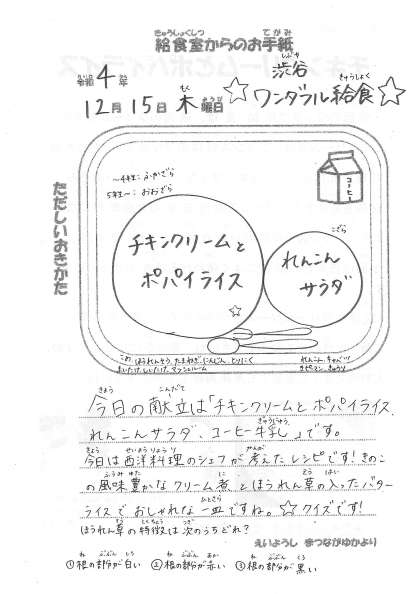 給食室からのお手紙
令和4年
渋谷
12月15日木曜日 ☆ワンダフル給食☆
ただしいおきかた
～4年生：ふかざら
5年生～：おおざら
コーヒー
チキンクリームと
ポパイライス
☆
こざら
れんこん
サラダ
こめ、ほうれんそう、たまねぎ、にんじん、とりにく
まいたけ、しいたけ、マッシュルーム
れんこん、キャベツ
きゅうり
今日の献立は「チキンクリームと ポパイライス、
れんこんサラダ、コーヒー牛乳」です。
今日は西洋料理のシェフが考えたレシピです！きのこ
の風味豊かなクリーム煮とほうれん草の入ったバター
ライスでおしゃれな一皿ですね。☆クイズです！
ほうれん草の特徴は次のうちどれ？
えいようし まつながゆかより
①根の部分が白い ②根の部分が赤い ③根の部分が黒い